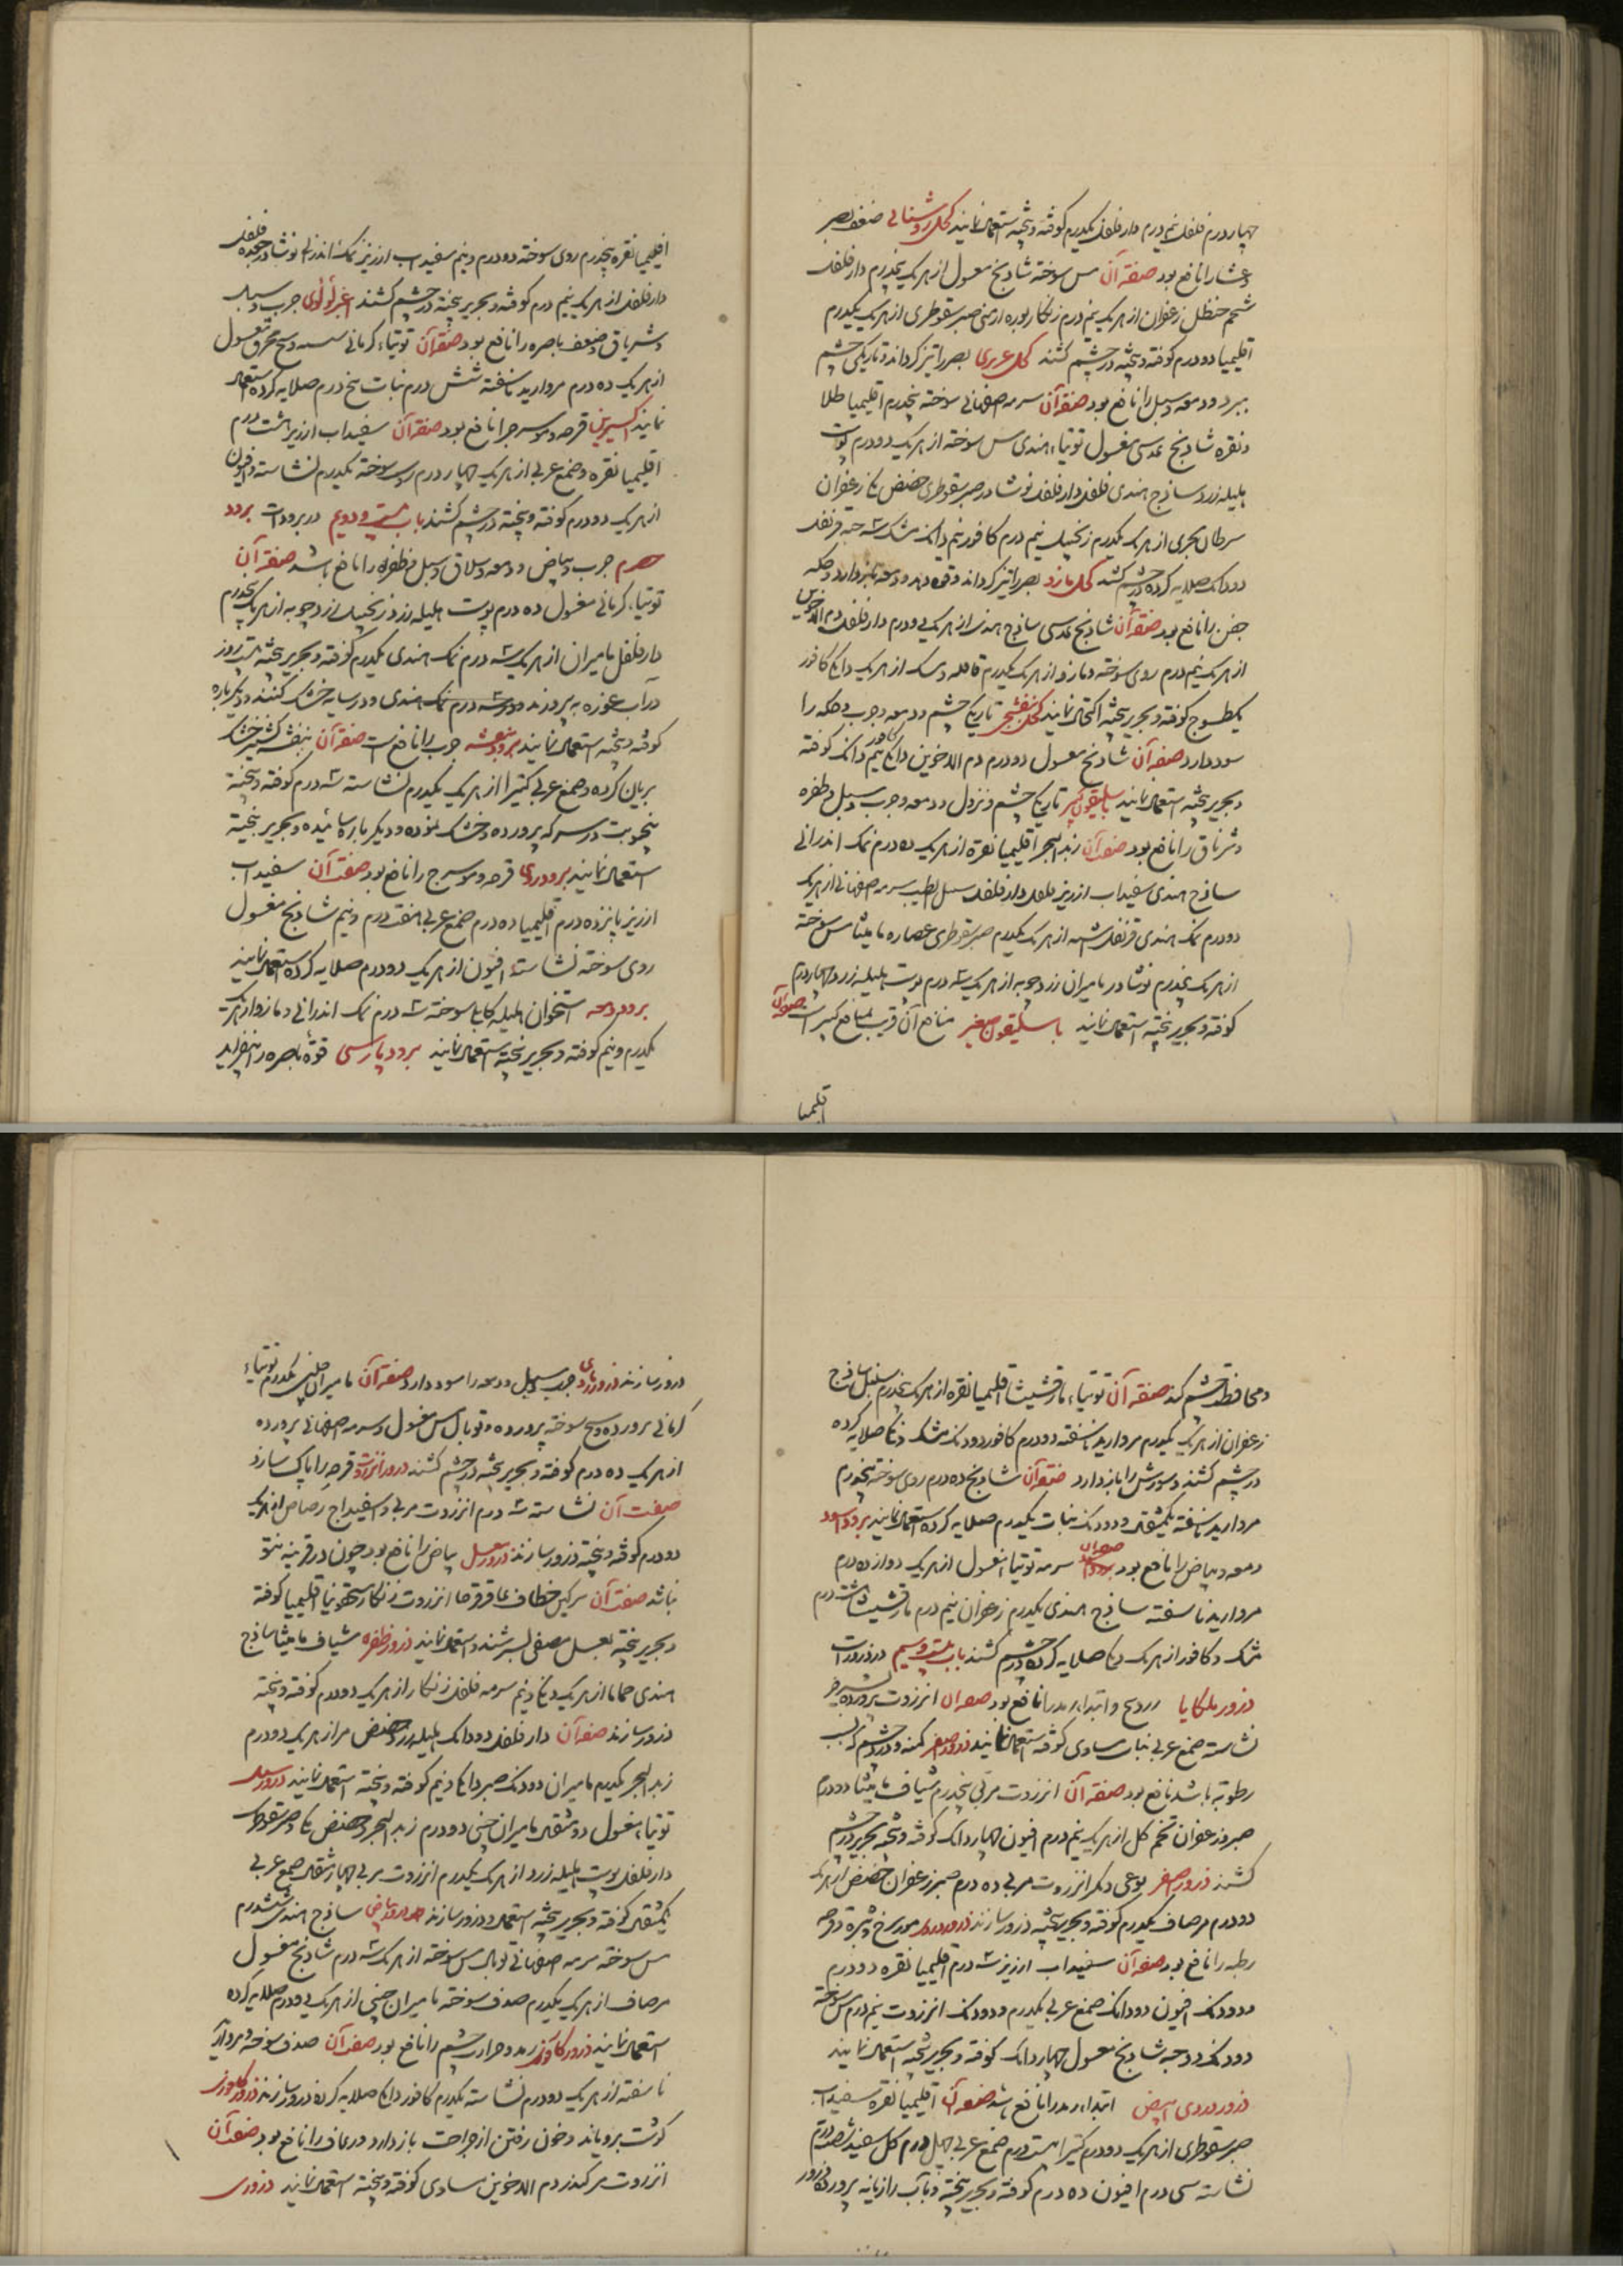 چهار درم فلفل نیم درم دارفلفل یکدرم کوفته و بیخته استعمال نمایند کحل روشنائی ضعف بصر
و عشا را نافع بود صفة آن مس سوخته شادنج مغسول از هریک پنجدرم دارفلفل
شحم حنظل زعفران از هریک نیم درم زنگار بوره ارمنی صبر سقوطری از هریک یکدرم
اقلیمیا دو درم کوفته و بیخته در چشم کشند کحل عزیزی بصر را تیز گرداند و تاریکی چشم
ببرد و دمعه و سبل را نافع بود صفة آن سرمه صفهانی سوخته پنجدرم اقلیمیا طلا
و نقره شادنج عدسی مغسول توتیاء هندی مس سوخته از هریک دو درم پوست
هلیله زرد ساذج هندی فلفل دارفلفل نوشادر صبر سقوطری حضض مکی زعفران
سرطان بحری از هریک یکدرم زنجبیل نیم درم کافور نیم دانک مشک سه حبه قرنفل
دو دانک صلایه کرده در چشم کشند کحل مازو بصر را تیز گرداند و قوه دهد و دمعه باز دارد و حکه
جفن را نافع بود صفة آن شادنج عدسی ساذج هندی از هریک دو درم دارفلفل دم الاخوین
از هریک نیم درم روی سوخته و مازو از هریک یکدرم قاقله و مسک از هریک دانکی کافور
یکطسوج کوفته و بحریر بیخته اکتحال نمایند کحل بنفشجی تاریکی چشم و دمعه و جرب و حکه را
سود دارد صفة آن شادنج مغسول دو درم دم الاخوین دانکی کافور نیم دانک کوفته
و بحریر بیخته استعمال نمایند باسلیقون کبیر تاریکی چشم و نزول و دمعه و جرب و سبل و ظفره
و شرناق را نافع بود صفة آن زبد البحر اقلیمیا نقره از هریک ده درم نمک اندرانی
ساذج هندی سفیداب ارزیز فلفل دارفلفل سنبل الطیب سرمه صفهانی از هریک
دو درم نمک هندی قرنفل اشنه از هریک یکدرم صبر سقوطری عصاره مامیثا مس سوخته
از هریک پنجدرم نوشادر مامیران زردچوبه از هریک سه درم پوست هلیله زرد چهار درم
کوفته و بحریر بیخته استعمال نمایند باسلیقون صغیر منافع آن قریب بمنافع کبیر است صفة آن
اقلیمیا
اقلیمیا نقره پنجدرم روی سوخته دو درم و نیم سفیداب ارزیز نمک اندرانی نوشادر جعده فلفل
دارفلفل از هریک نیم درم کوفته و بحریر بیخته در چشم کشند اغبر لؤلؤی جرب و سبل
و شرناق و ضعف باصره را نافع بود صفة آن توتیاء کرمانی محرق مغسول
از هریک ده درم مروارید ناسفته شش درم نبات پنج درم صلایه کرده استعمال
نمایند اکسیرین قرحه و موسرج را نافع بود صفة آن سفیداب ارزیز هشت درم
اقلیمیا نقره و صمغ عربی از هریک چهار درم سوخته یکدرم نشاسته و افیون
از هریک دو درم کوفته و بیخته در چشم کشند باب بیست و دویم در برودات برود
حصرم جرب و بیاض و دمعه و سلاق و سبل و ظفره را نافع باشد صفة آن
توتیاء کرمانی مغسول ده درم پوست هلیله زرد زنجبیل زردچوبه از هریک پنجدرم
دارفلفل مامیران از هریک سه درم نمک هندی یکدرم کوفته و بحریر بیخته هشت روز
در آب غوره به پرورند و درسه درم نمک هندی و در سایه خشک کنند و دیگر باره
کوفته و بیخته استعمال نمایند برود بنفشه جرب را نافع است صفة آن بنفشه کشنیز خشک
بریان کرده و صمغ عربی کتیرا از هریک یکدرم نشاسته سه درم کوفته و بیخته
پنج نوبت در سرکه پرورده و خشک نموده و دیگر باره سائیده و بحریر بیخته
استعمال نمایند برود وردی قرحه و موسرج را نافع بود صفت آن سفیداب
ارزیز پانزده درم اقلیمیا ده درم صمغ عربی هفت درم و نیم شادنج مغسول
روی سوخته نشاسته افیون از هریک دو درم صلایه کرده استعمال نمایند
برود دمعه استخوان هلیله کابلی سوخته سه درم نمک اندرانی و مازو از هریک
یکدرم و نیم کوفته و بحریر بیخته استعمال نمایند برود پارسی قوة باصره را بیفزاید
و محافظت چشم کند صفة آن توتیاء مارقشیشا اقلیمیا نقره از هریک پنجدرم سنبل ساذج
زعفران از هریک یکدرم مروارید ناسفته دو درم کافور دو دنک مشک دنکی صلایه کرده
در چشم کشند و سوزش را باز دارد صفة آن شادنج ده درم روی سوخته پنجدرم
مروارید ناسفته یکمثقال و دو دنک نبات یکدرم صلایه کرده استعمال نمایند برود اسود
دمعه و بیاض را نافع بود صفة آن سرمه توتیا مغسول از هریک دوازده درم
مروارید ناسفته ساذج هندی یکدرم زعفران نیم درم مارقشیشا هشت درم
مشک و کافور از هریک دنکی صلایه کرده در چشم کشند باب بیست و سیم در ذرورات
ذرور ملکایا وردینج و ابتداء رمد را نافع بود صفة آن انزروت پرورده بشیر خر
نشاسته صمغ عربی نبات مساوی کوفته استعمال نمایند ذرور اصفر کمنه و درد چشم که بسبب
رطوبة باشد نافع بود صفة آن انزروت مربی پنجدرم شیاف مامیثا دو درم
صبر زعفران تخم گل از هریک نیم درم افیون چهار دانک کوفته و بیخته بحریر در چشم
کشند ذرور اصفر نوعی دیگر انزروت مربی ده درم صبر زعفران حضض از هریک
دو درم مرصاف یکدرم کوفته و بحریر بیخته ذرور سازند ذرور وردی مورسرج و بثره و قرحه
رطبه را نافع بود صفة آن سفیداب ارزیز سه درم اقلیمیا نقره دو درم
و دو دنک افیون دو دانک صمغ عربی یکدرم و دو دنک انزروت نیم درم مس سوخته
دو دنک دو حبه شادنج مغسول چهار دانک کوفته و بحریر بیخته استعمال نمایند
ذرور وردی ابیض ابتداء رمد را نافع باشد صفة آن اقلیمیا نقره سفیداب
صبر سقوطری از هریک دو درم کتیرا بیست درم صمغ عربی چهل درم گل سفید شصت درم
نشاسته سی درم افیون ده درم کوفته و بحریر بیخته و بآب رازیانه پرورده ذرور
ذرور سازند ذرور رمادی جرب و سبل و دمعه را سود دارد صفة آن مامیران چینی یکدرم توتیاء
کرمانی پرورده و سنج سوخته پرورده و توبال مس مغسول و سرمه صفهانی پرورده
از هریک ده درم کوفته و بحریر بیخته در چشم کشند ذرور انزروت قرحه را پاک سازد
صفت آن نشاسته سه درم انزروت مربی و اسفیداج رصاص از هریک
دو درم کوفته و بیخته ذرور سازند ذرور عسل بیاض را نافع بود چون در قرنیه نتو
نباشد صفت آن سرگین خطاف عاقرقرحا انزروت زنگار سقمونیا اقلیمیا کوفته
و بحریر بیخته بعسل مصفی بسرشند و استعمال نمایند ذرور ظفره شیاف مامیثا ساذج
هندی حماما از هریک دنکی و نیم سرمه فلفل زنگار از هریک دو درم کوفته و بیخته
ذرور سازند صفة آن دارفلفل دو دانک هلیله زرد حضض مر از هریک دو درم
زبد البحر یکدرم مامیران دو دنک صبر دانکی و نیم کوفته و بیخته استعمال نمایند ذرور سبل
توتیاء مغسول دو مثقال مامیران چینی دو درم زبد البحر و حضض مکی و صبر سقوطری
دارفلفل پوست هلیله زرد از هریک یکدرم انزروت مربی چهار مثقال صمغ عربی
یکمثقال کوفته و بحریر بیخته استعمال و ذرور سازند ساذج هندی ششدرم
مس سوخته سرمه صفهانی توبال مس سوخته از هریک سه درم شادنج مغسول
مرصاف از هریک یکدرم صدف سوخته مامیران چینی از هریک دو درم صلایه کرده
استعمال نمایند ذرور کافوری رمد و حرارت چشم را نافع بود صفة آن صدف سوخته مروارید
ناسفته از هریک دو درم نشاسته یکدرم کافور دانکی صلایه کرده ذرور سازند ذرور
گوشت برویاند و خون رفتن از جراحت باز دارد و رعاف را نافع بود صفة آن
انزروت مر کندر دم الاخوین مساوی کوفته و بیخته استعمال نمایند ذروری